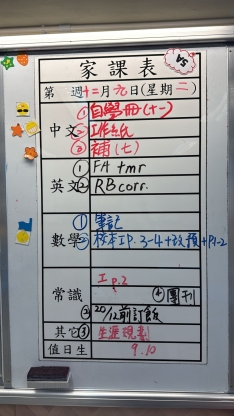 5A
家課表
第 週十二月九日(星期二)
中文 ① 自學冊(十一)
② 工作紙
③ 補(七)
英文 ① FA tmr
② RB corr.
數學 ① 筆記
② 校本 I P. 3-4 + 改預 + P1-2
常識 I P.2
④ 團刊
③ 20/12前訂飯
其它 ③ 生涯規劃
值日生 9.10